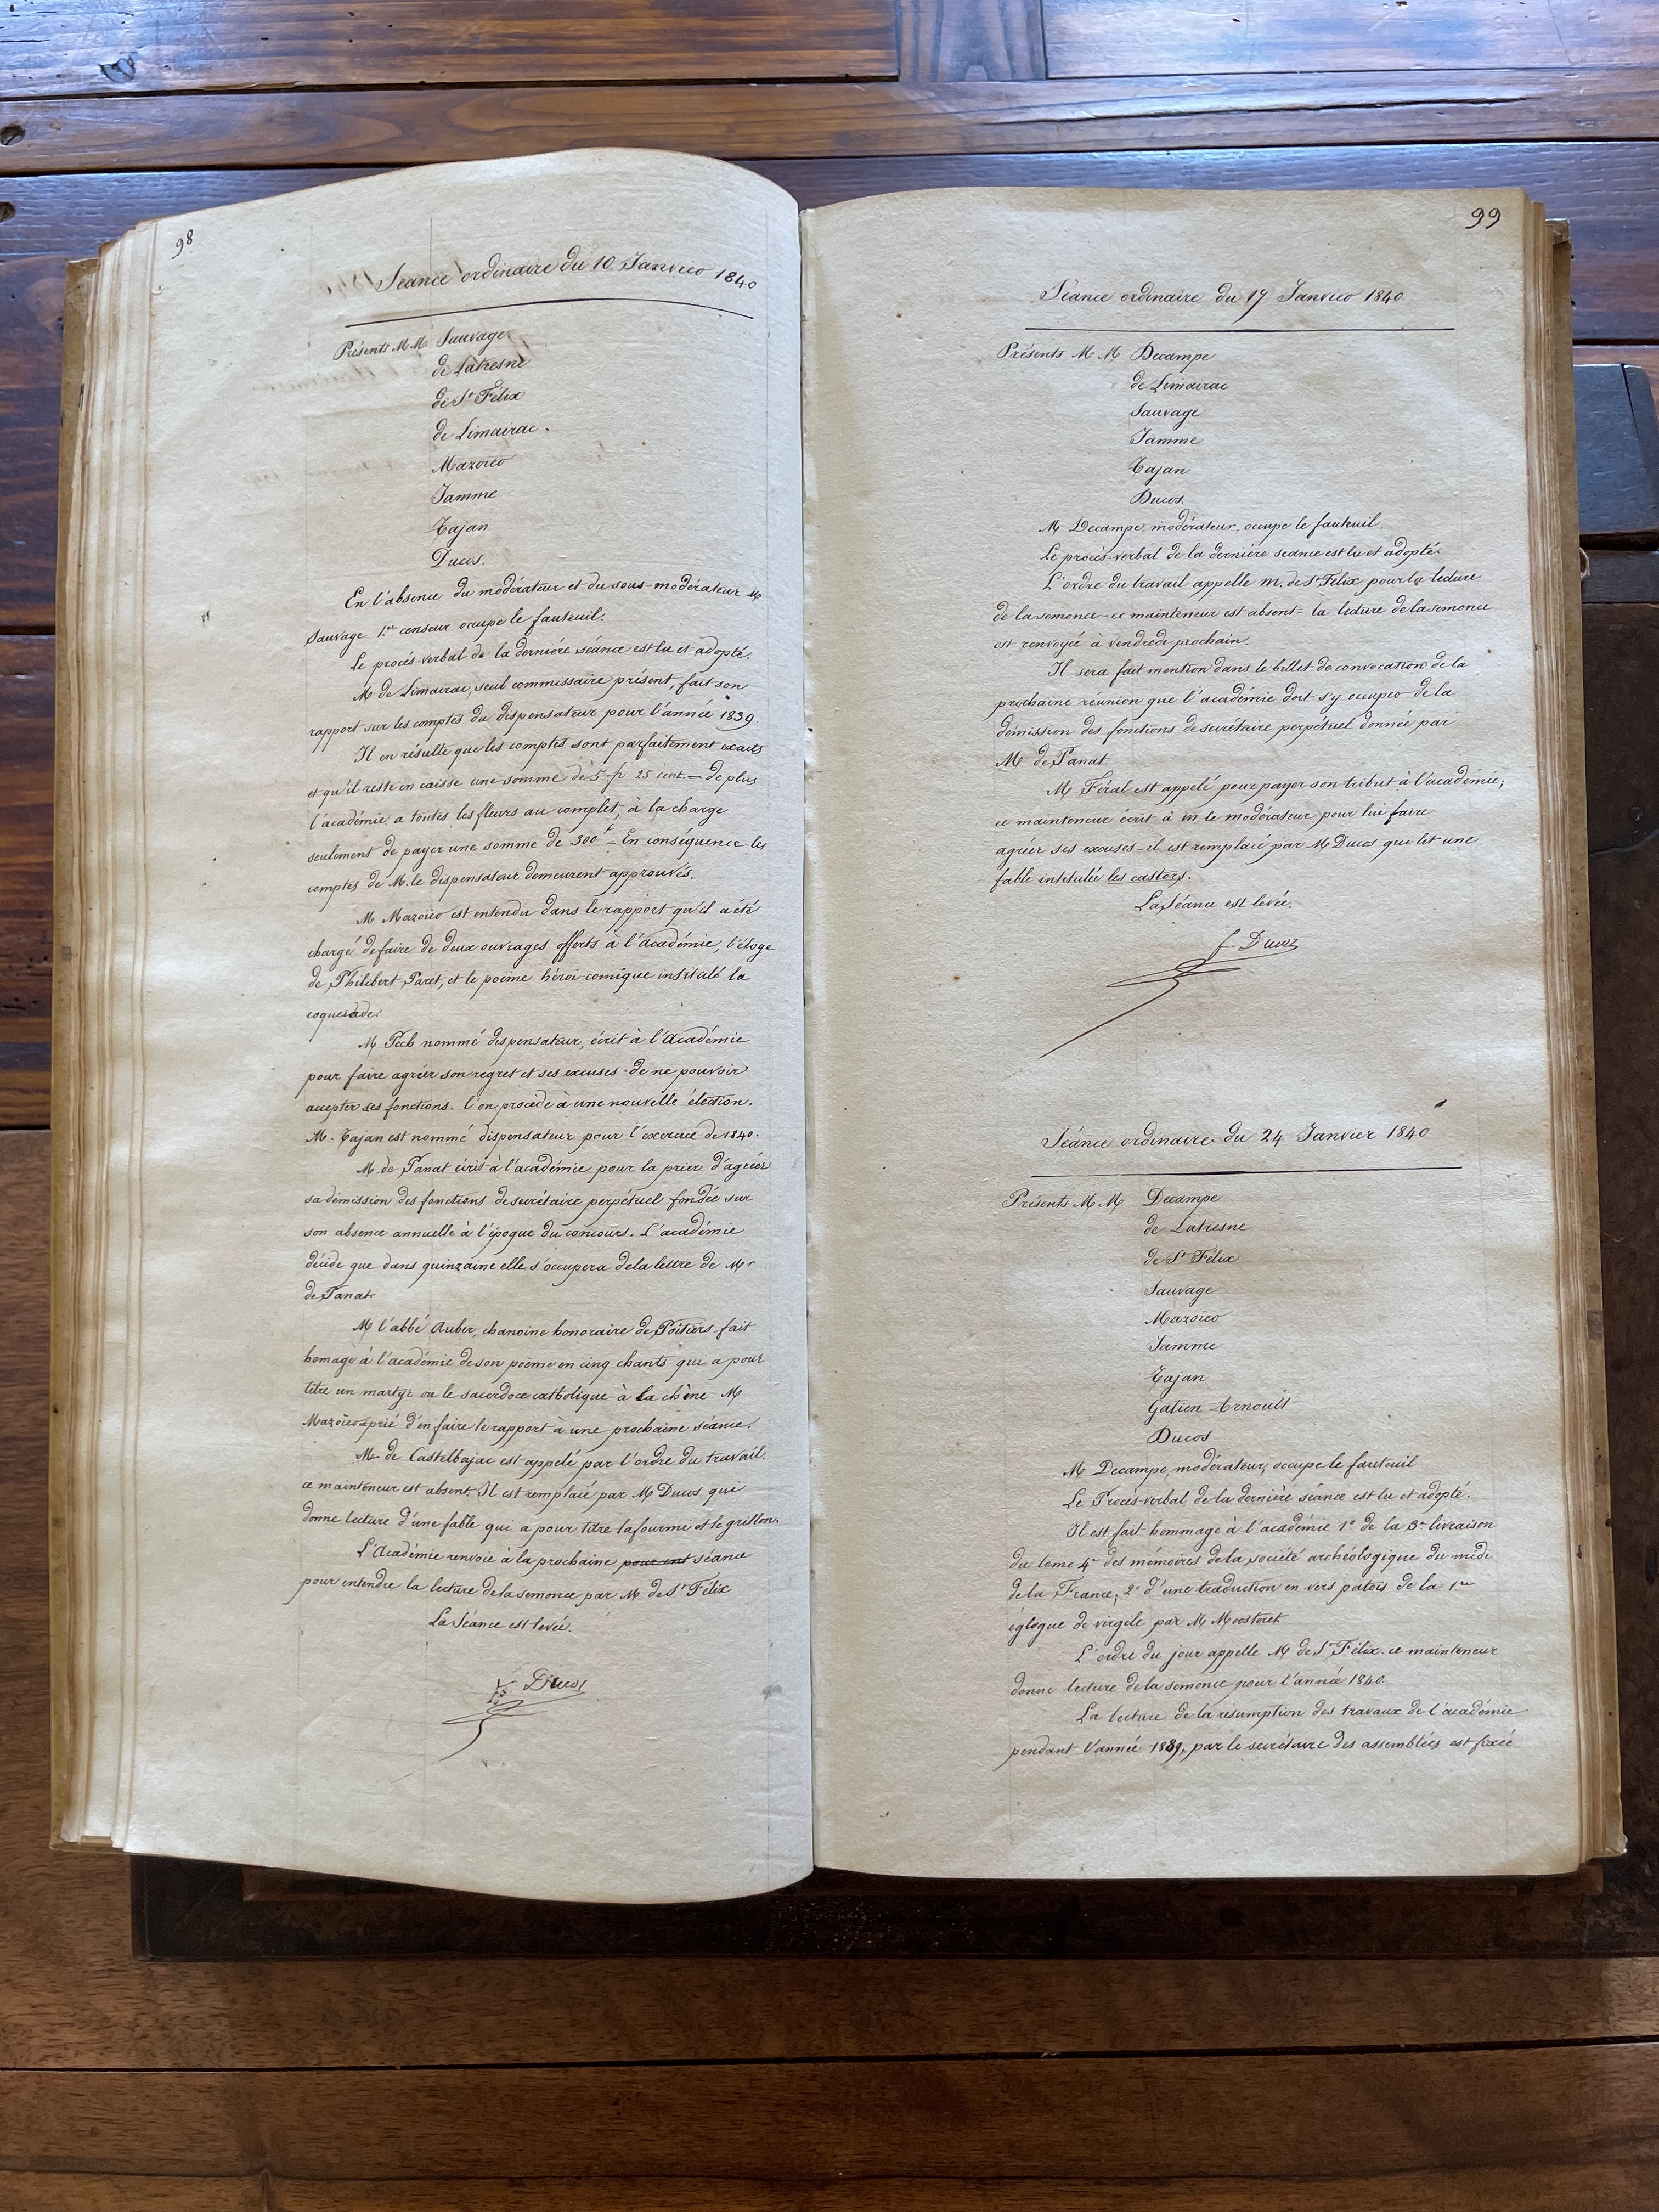 98
Séance ordinaire du 10 Janvier 1840
Présents M.M. Sauvage
de Latresne
de St Félix
de Limairac.
Mazoïer
Jamme
Tajan
Ducos.
En l'absence du modérateur et du sous-modérateur M
Sauvage 1.er censeur occupe le fauteuil.
Le procés-verbal de la derniére séance est lu et adopté.
M de Limairac, seul commissaire présent, fait son
rapport sur les comptes du dispensateur pour l'année 1839.
Il en résulte que les comptes sont parfaitement exacts
et qu'il reste en caisse une somme de 5 fr 25 cent. = de plus
l'académie a toutes les fleurs au complet, à la charge
seulement de payer une somme de 300f = En conséquence les
comptes de M. le dispensateur demeurent approuvés.
M Mazoïer est entendu dans le rapport qu'il a été
chargé de faire de deux ouvrages offerts à l'académie, l'éloge
de Philibert Paret, et le poëme héroï-comique institulé la
M Pech nommé dispensateur, écrit à l'Académie
pour faire agréer son regret et ses excuses de ne pouvoir
accepter ses fonctions. l'on procède à une nouvelle élection.
M. Tajan est nommé dispensateur pour l'exercice de 1840.
M. de Panat écrit à l'académie pour la prier d'agréer
sa démission des fonctions de secrétaire perpétuel fondée sur
son absence annuelle à l'époque du concours. L'académie
décide que dans quinzaine elle s'occupera de la lettre de Mr
de Panat.
M l'abbé Auber, chanoine honoraire de Poitiers fait
homage à l'académie de son poëme en cinq chants qui a pour
titre un martyr ou le sacerdoce catholique à la chine. M
Mazoïer prié d'en faire le rapport à une prochaine séance.
M. de Castelbajac est appelé par l'ordre du travail.
ce mainteneur est absent. Il est remplacé par M Ducos qui
donne lecture d'une fable qui a pour titre la fourmi et le grillon.
L'Académie renvoie à la prochaine pour ent séance
pour entendre la lecture de la semonce par M de St Félix
La Séance est levée.
Ducos
99
Séance ordinaire du 17 Janvier 1840
Présents M M Decampe
de Limairac
Sauvage
Jamme
Tajan
Ducos.
M Decampe, modérateur, occupe le fauteuil.
Le procés-verbal de la derniére séance est lu et adopté.
L'ordre du travail appelle m. de St Félix pour la lecture
de la semonce - ce mainteneur est absent = la lecture de la semonce
est renvoyée à vendredi prochain.
Il sera fait mention dans le billet de convocation de la
prochaine réunion que l'académie doit s'y occuper de la
démission des fonctions de secrétaire perpétuel donnée par
M de Panat
M Féral est appelé pour payer son tribut à l'académie;
ce mainteneur écrit à m le modérateur pour lui faire
agréer ses excuses - il est remplacé par M Ducos qui lit une
fable institulée les castors.
La Séance est levée.
f. Ducos
Séance ordinaire du 24 Janvier 1840
Présents M. M Decampe
de Latresne
de St Félix
Sauvage
Mazoïer
Jamme
Tajan
Gatien Arnoult
Ducos
M Decampe, modérateur, occupe le fauteuil
Le Procés-verbal de la dernière séance est lu et adopté.
Il est fait hommage à l'académie 1° de la 3e livraison
du tome 4e des mémoires de la société archéologique du midi
de la France; 2° d'une traduction en vers patois de la 1re
églogue de virgile par M
L'ordre du jour appelle M de St Félix. ce mainteneur
donne lecture de la semonce pour l'année 1840.
La lecture de la résumption des travaux de l'académie
pendant l'année 1839, par le secrétaire des assemblées est fixée